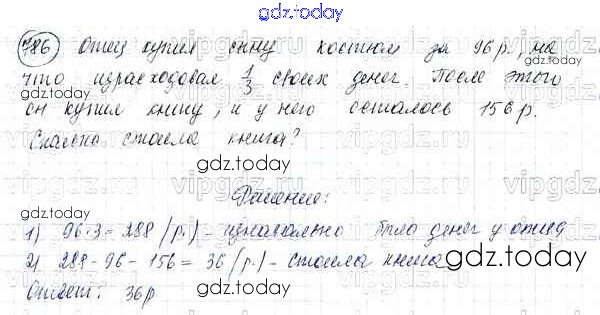 gdz.today
786 Отец купил сыну костюм за 96 р., на
что израсходовал 1/3 своих денег. После этого
он купил книгу, и у него осталось 156 р.
Сколько стоила книга?
gdz.today
Решение:
gdz.today
1) 96·3=288 (р.) - изначально было денег у отца
2) 288-96-156=36 (р.) - стоила книга
gdz.today
Ответ: 36 р
gdz.today